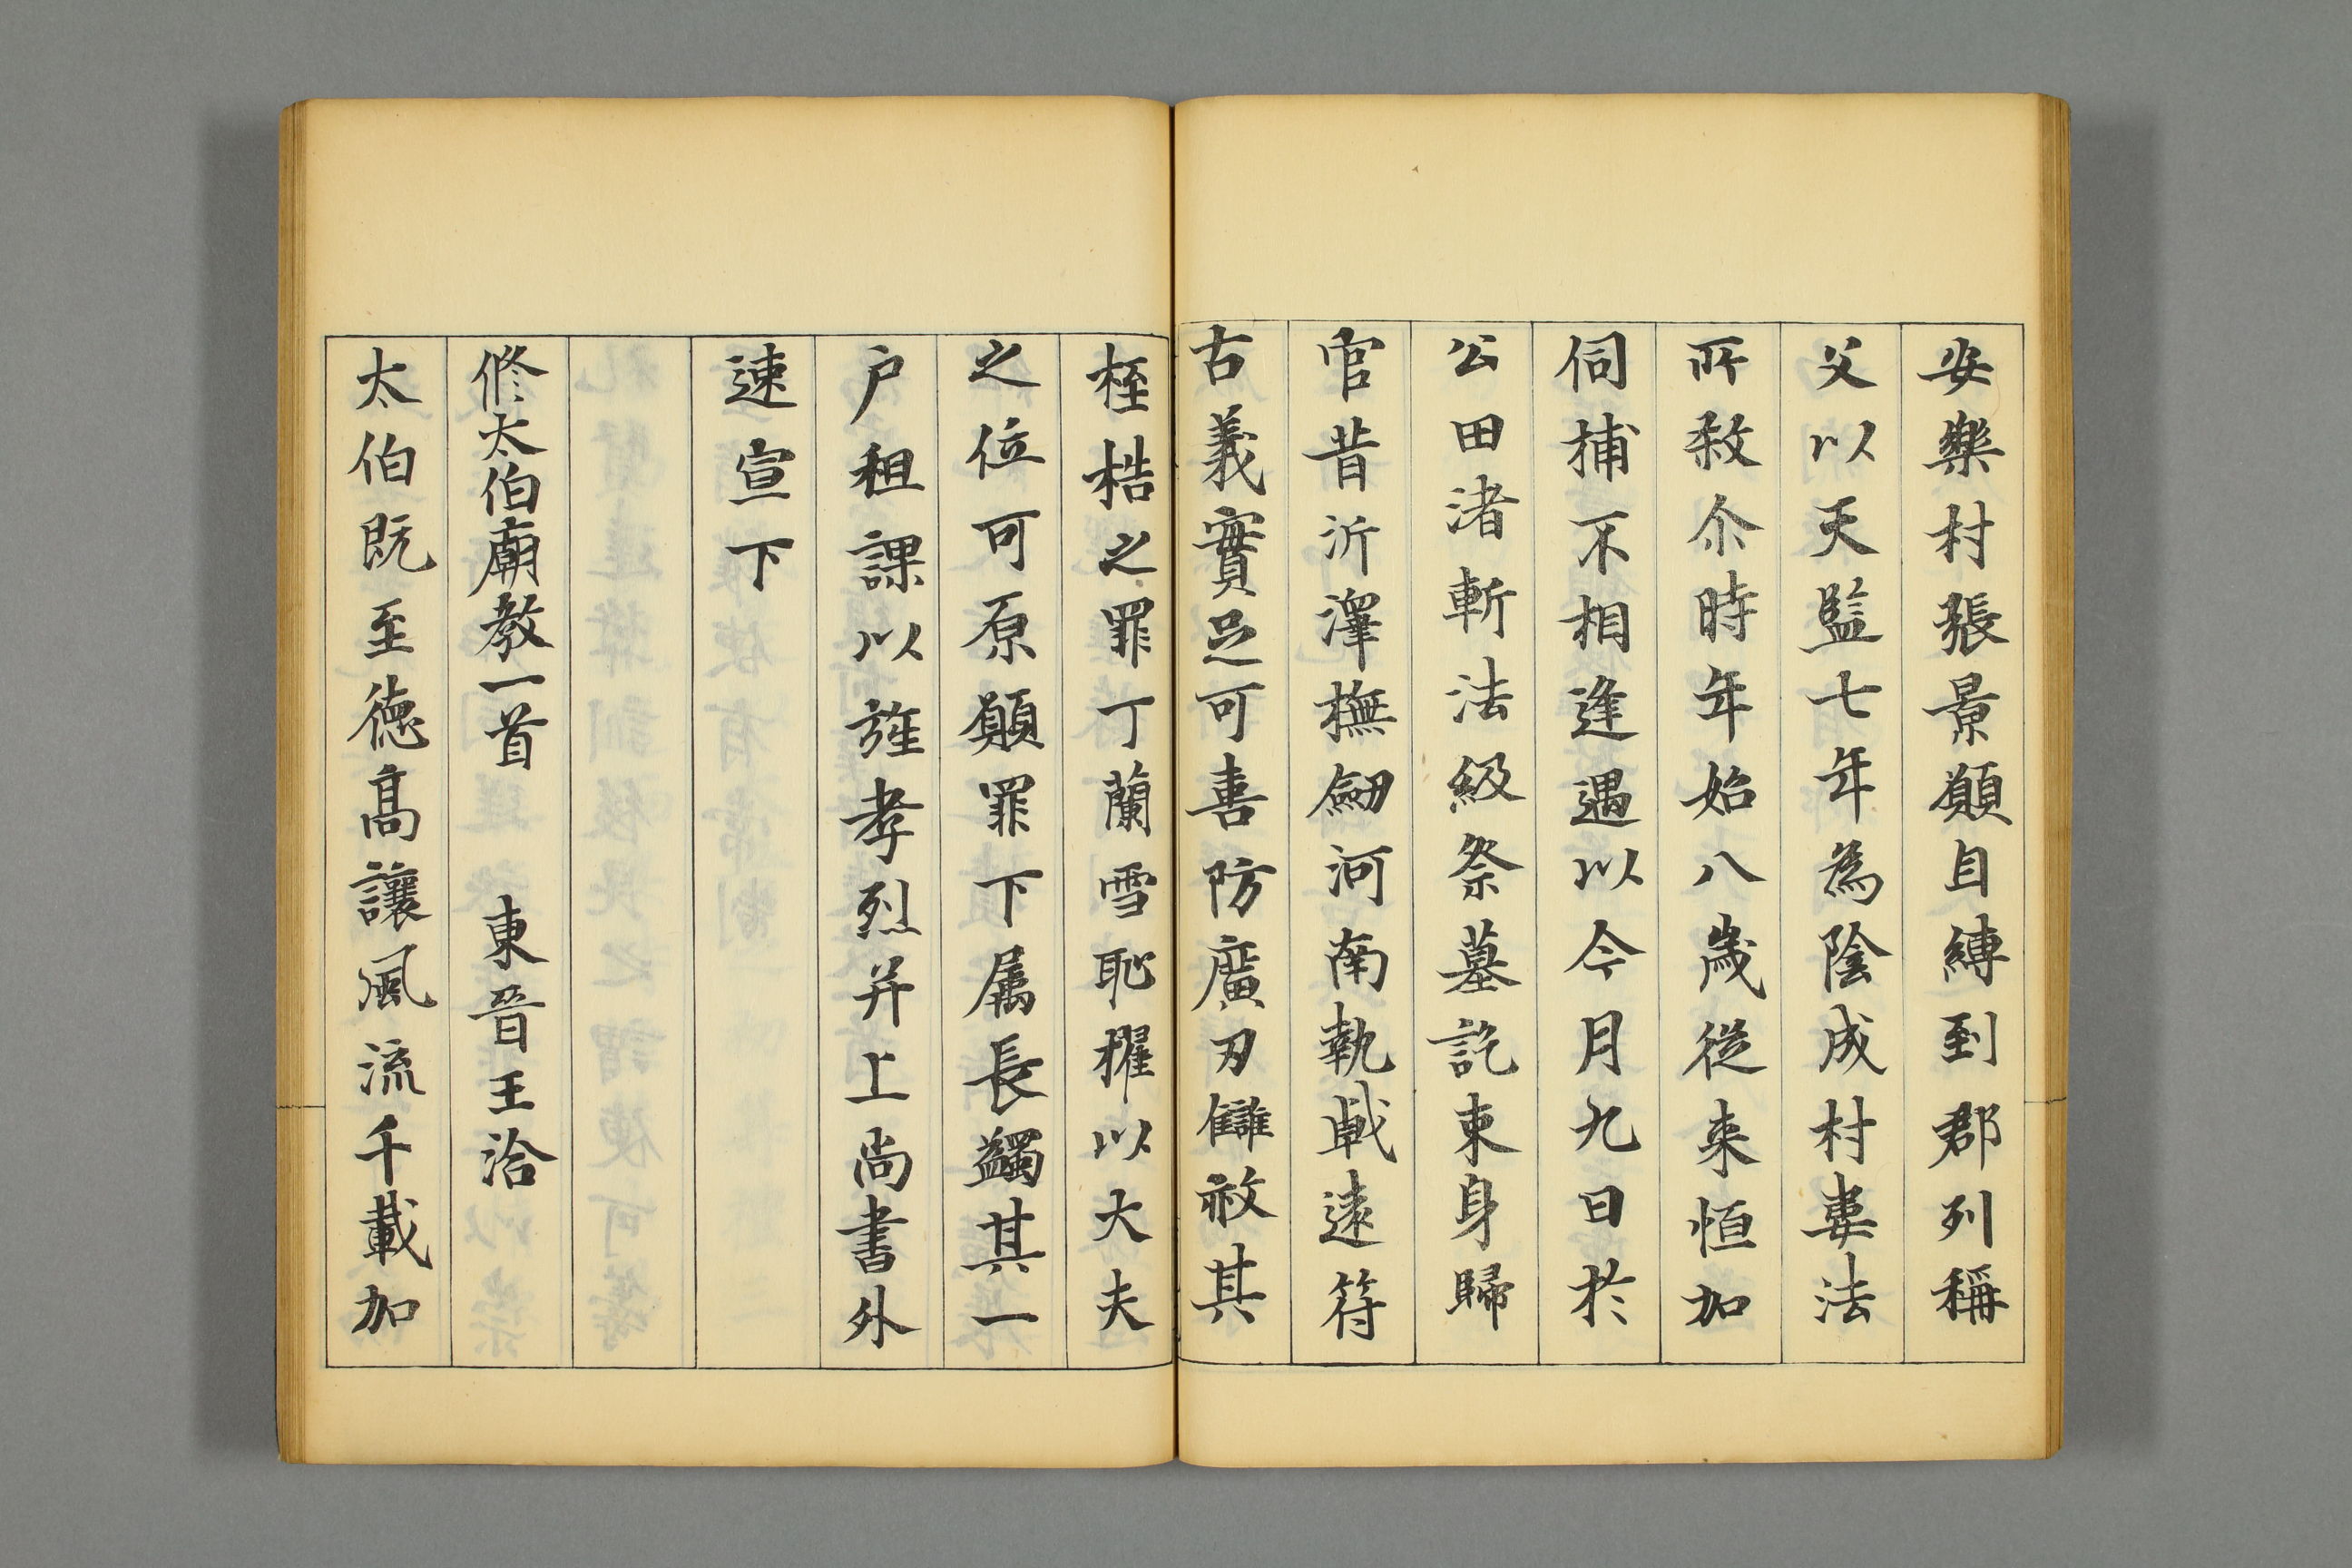 安樂村張景願自縛到郡列稱
父以天監七年為陰成村婁法
所敎尒時年始八歲從来恒加
伺捕不相逢遇以今月九日於
公田渚斬法級祭墓訖束身歸
官昔沂澤撫劒河南執戟遠符
古義實足可喜防廣刃讎敎其
桎梏之罪丁蘭雪恥擢以大夫
之位可原願罪下属長蠲其一
户租課以旌孝烈并上尚書外
速宣下
脩太伯廟教一首 東晉王洽
太伯既至德髙讓風流千載加